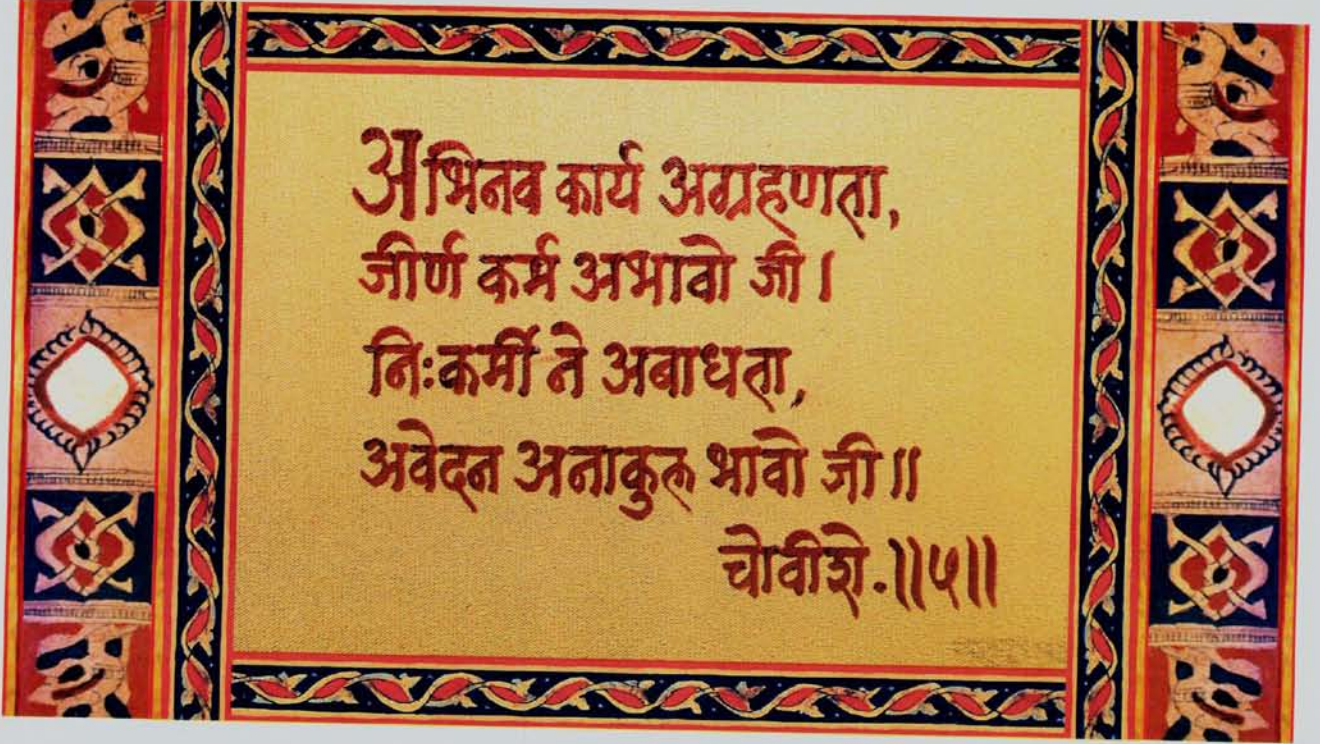 अभिनव कार्य अग्रहणता,
जीर्ण कर्म अभावो जी।
निःकर्मी ने अबाधता,
अवेदन अनाकुल भावो जी॥
चोवीशे.॥५॥